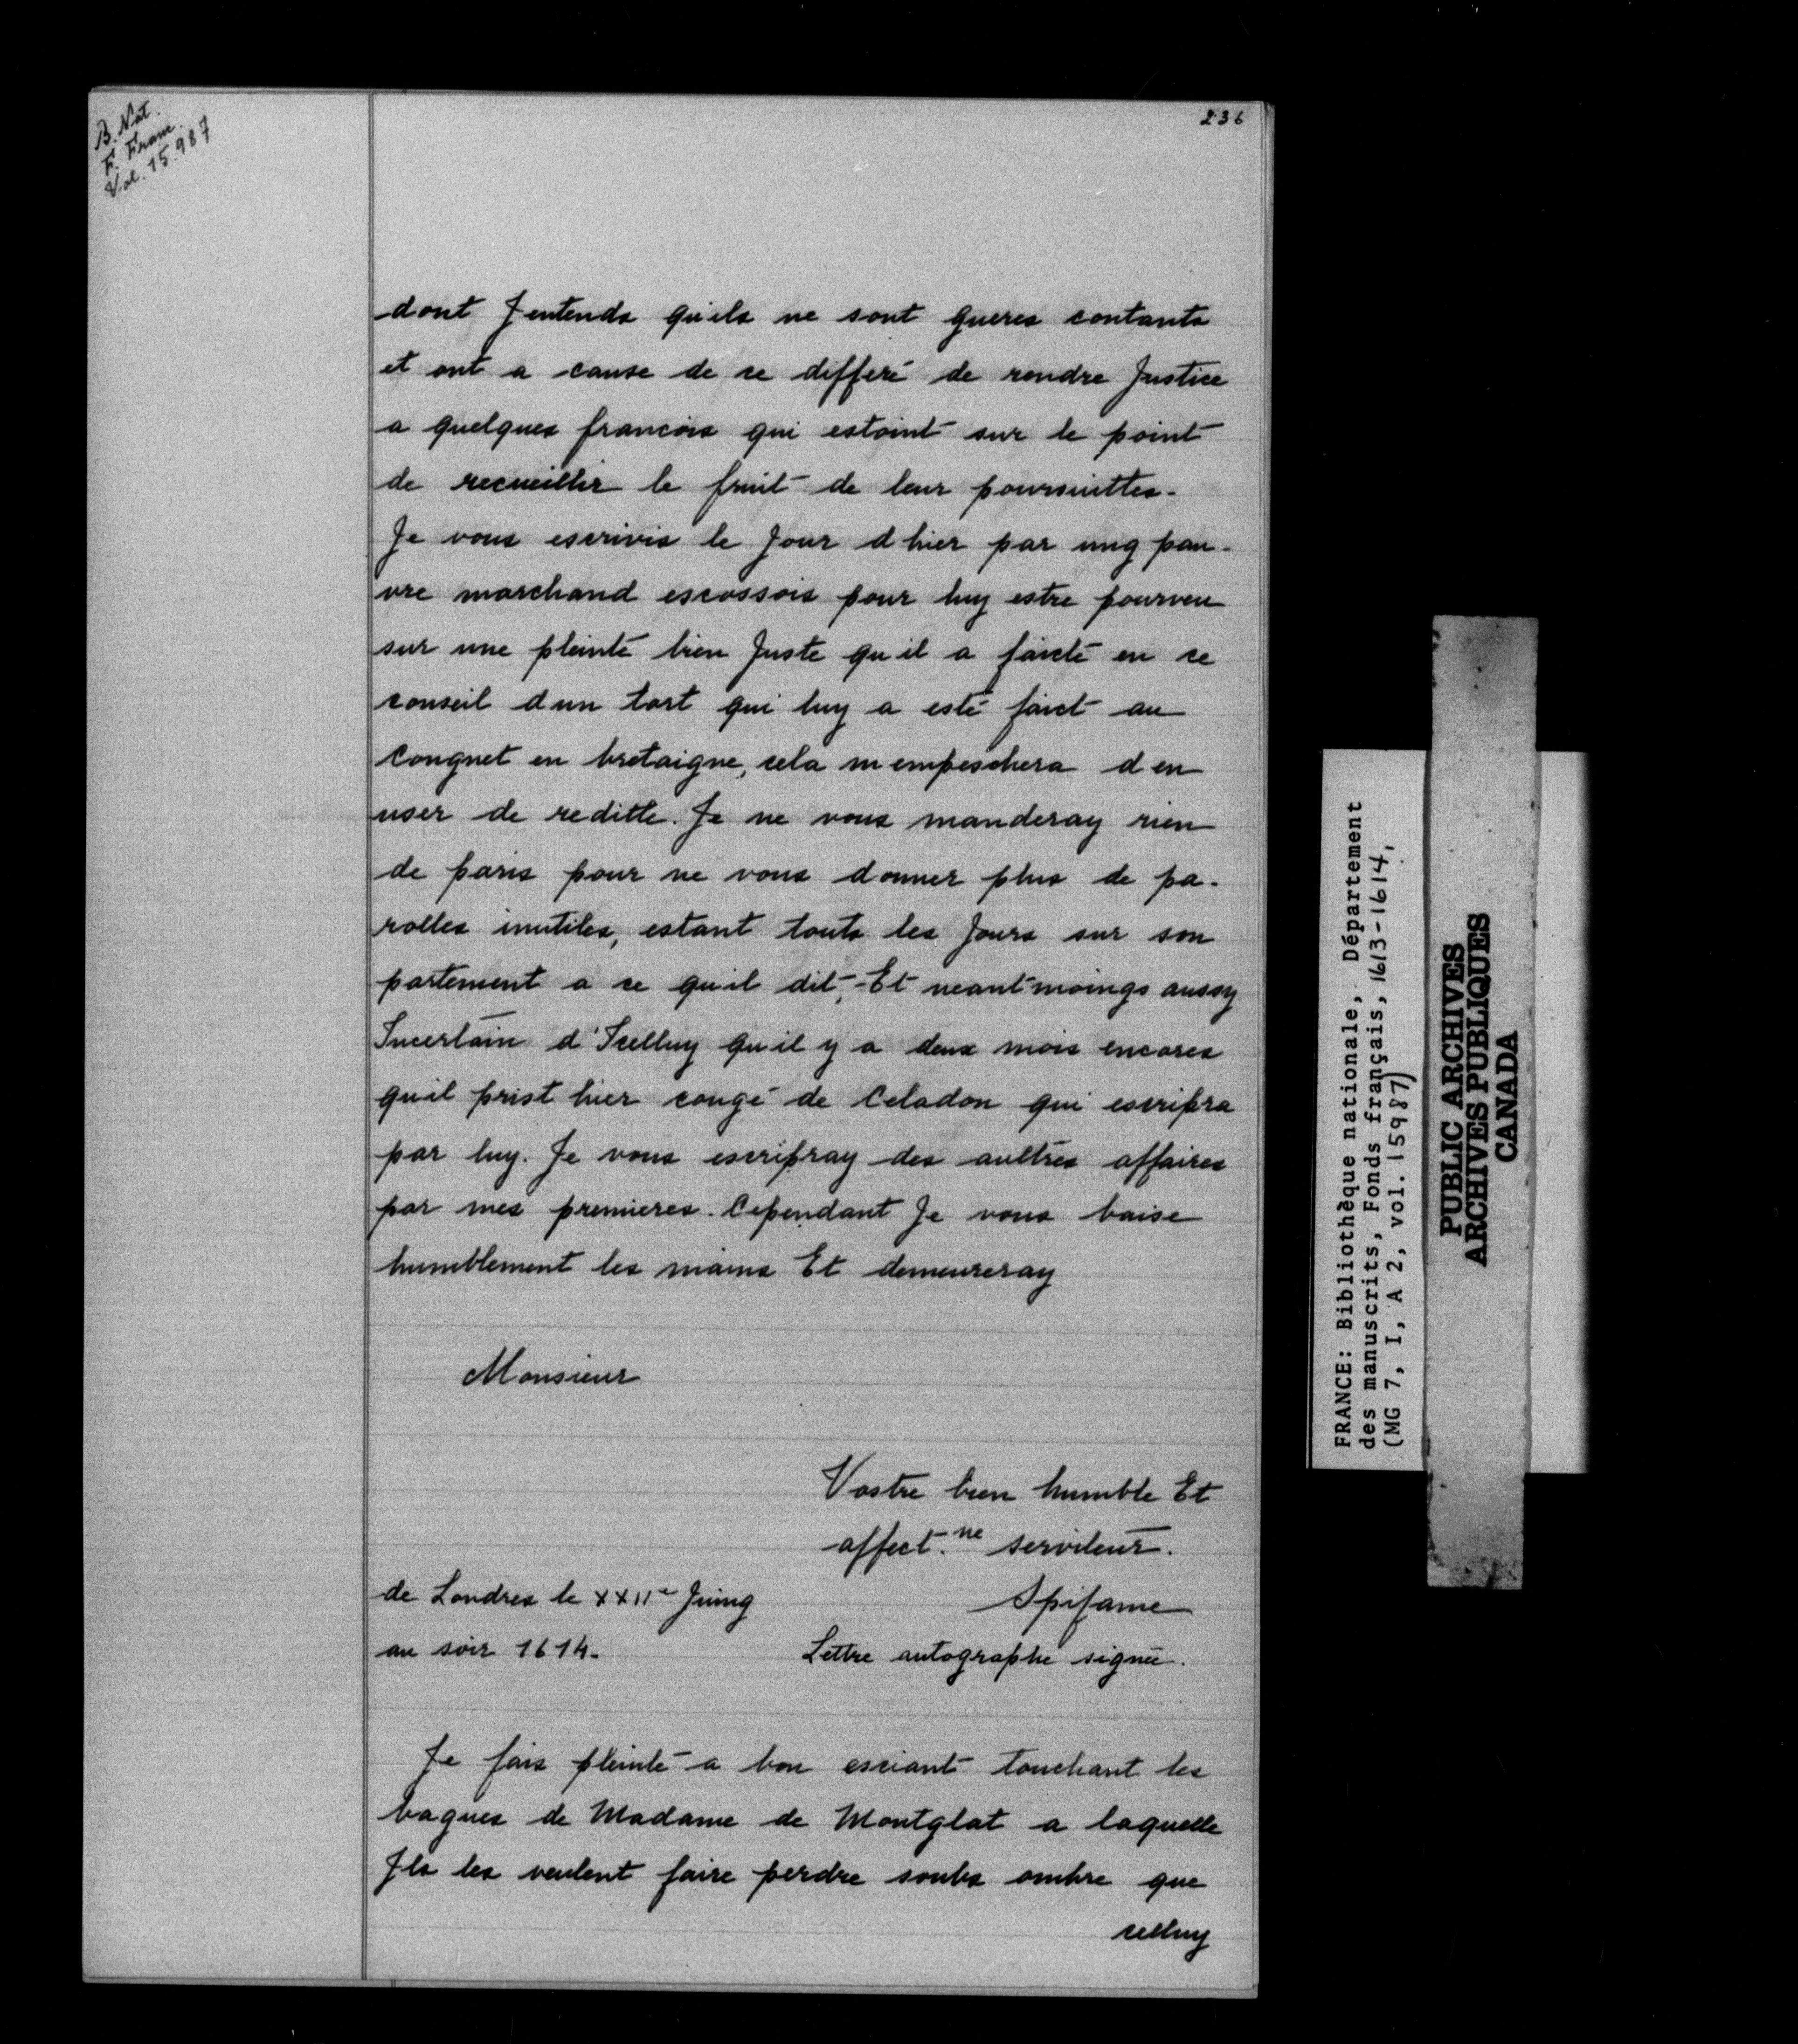 B. Nat.
F. Franc.
Vol. 15.987
236
dont Jentends qu'ils ne sont gueres contants
et ont a cause de ce differé de rendre Justice
a quelques francois qui estoint sur le point
de recueillir le fruit de leur poursuittes.
Je vous escrivis le Jour d hier par ung pau-
vre marchand escossois pour luy estre pourveu
sur une pleinte bien Juste qu il a faicte en ce
conseil d un tort qui luy a esté faict au
Conquet en bretaigne, cela m empeschera d en
user de reditte. Je ne vous manderay rien
de paris pour ne vous donner plus de pa-
rolles inutiles, estant touts les Jours sur son
partement a ce qu il dit, Et neantmoings aussy
Incertain d'Icelluy qu il y a deux mois encores
qu il prist hier congé de Celadon qui escripra
par luy. Je vous escripray des aultres affaires
par mes premieres. Cependant Je vous baise
humblement les mains Et demeureray
Monsieur
Vostre bien humble Et
affect.ne serviteur.
de Londres le XXIIe Juing
Spifame
au soir 1614.
Lettre autographe signée.
Je fais pleinte a bon esciant touchant les
bagues de Madame de Montglat a laquelle
Jls les veulent faire perdre soubs ombre que
celluy
FRANCE: Bibliothèque nationale, Département
des manuscrits, Fonds français, 1613-1614,
(MG 7, I, A 2, vol. 15987)
PUBLIC ARCHIVES
ARCHIVES PUBLIQUES
CANADA